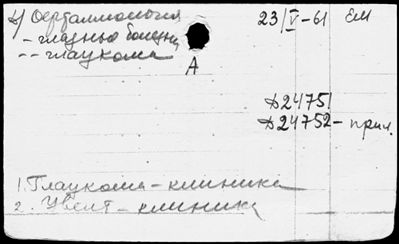 4) Офталмология 23/V-61 ЕМ
- глазные болезни
-- глаукома
А
Д24751
Д24752 - прил.
1. Глаукома - клиника
2. Увеит - клиника